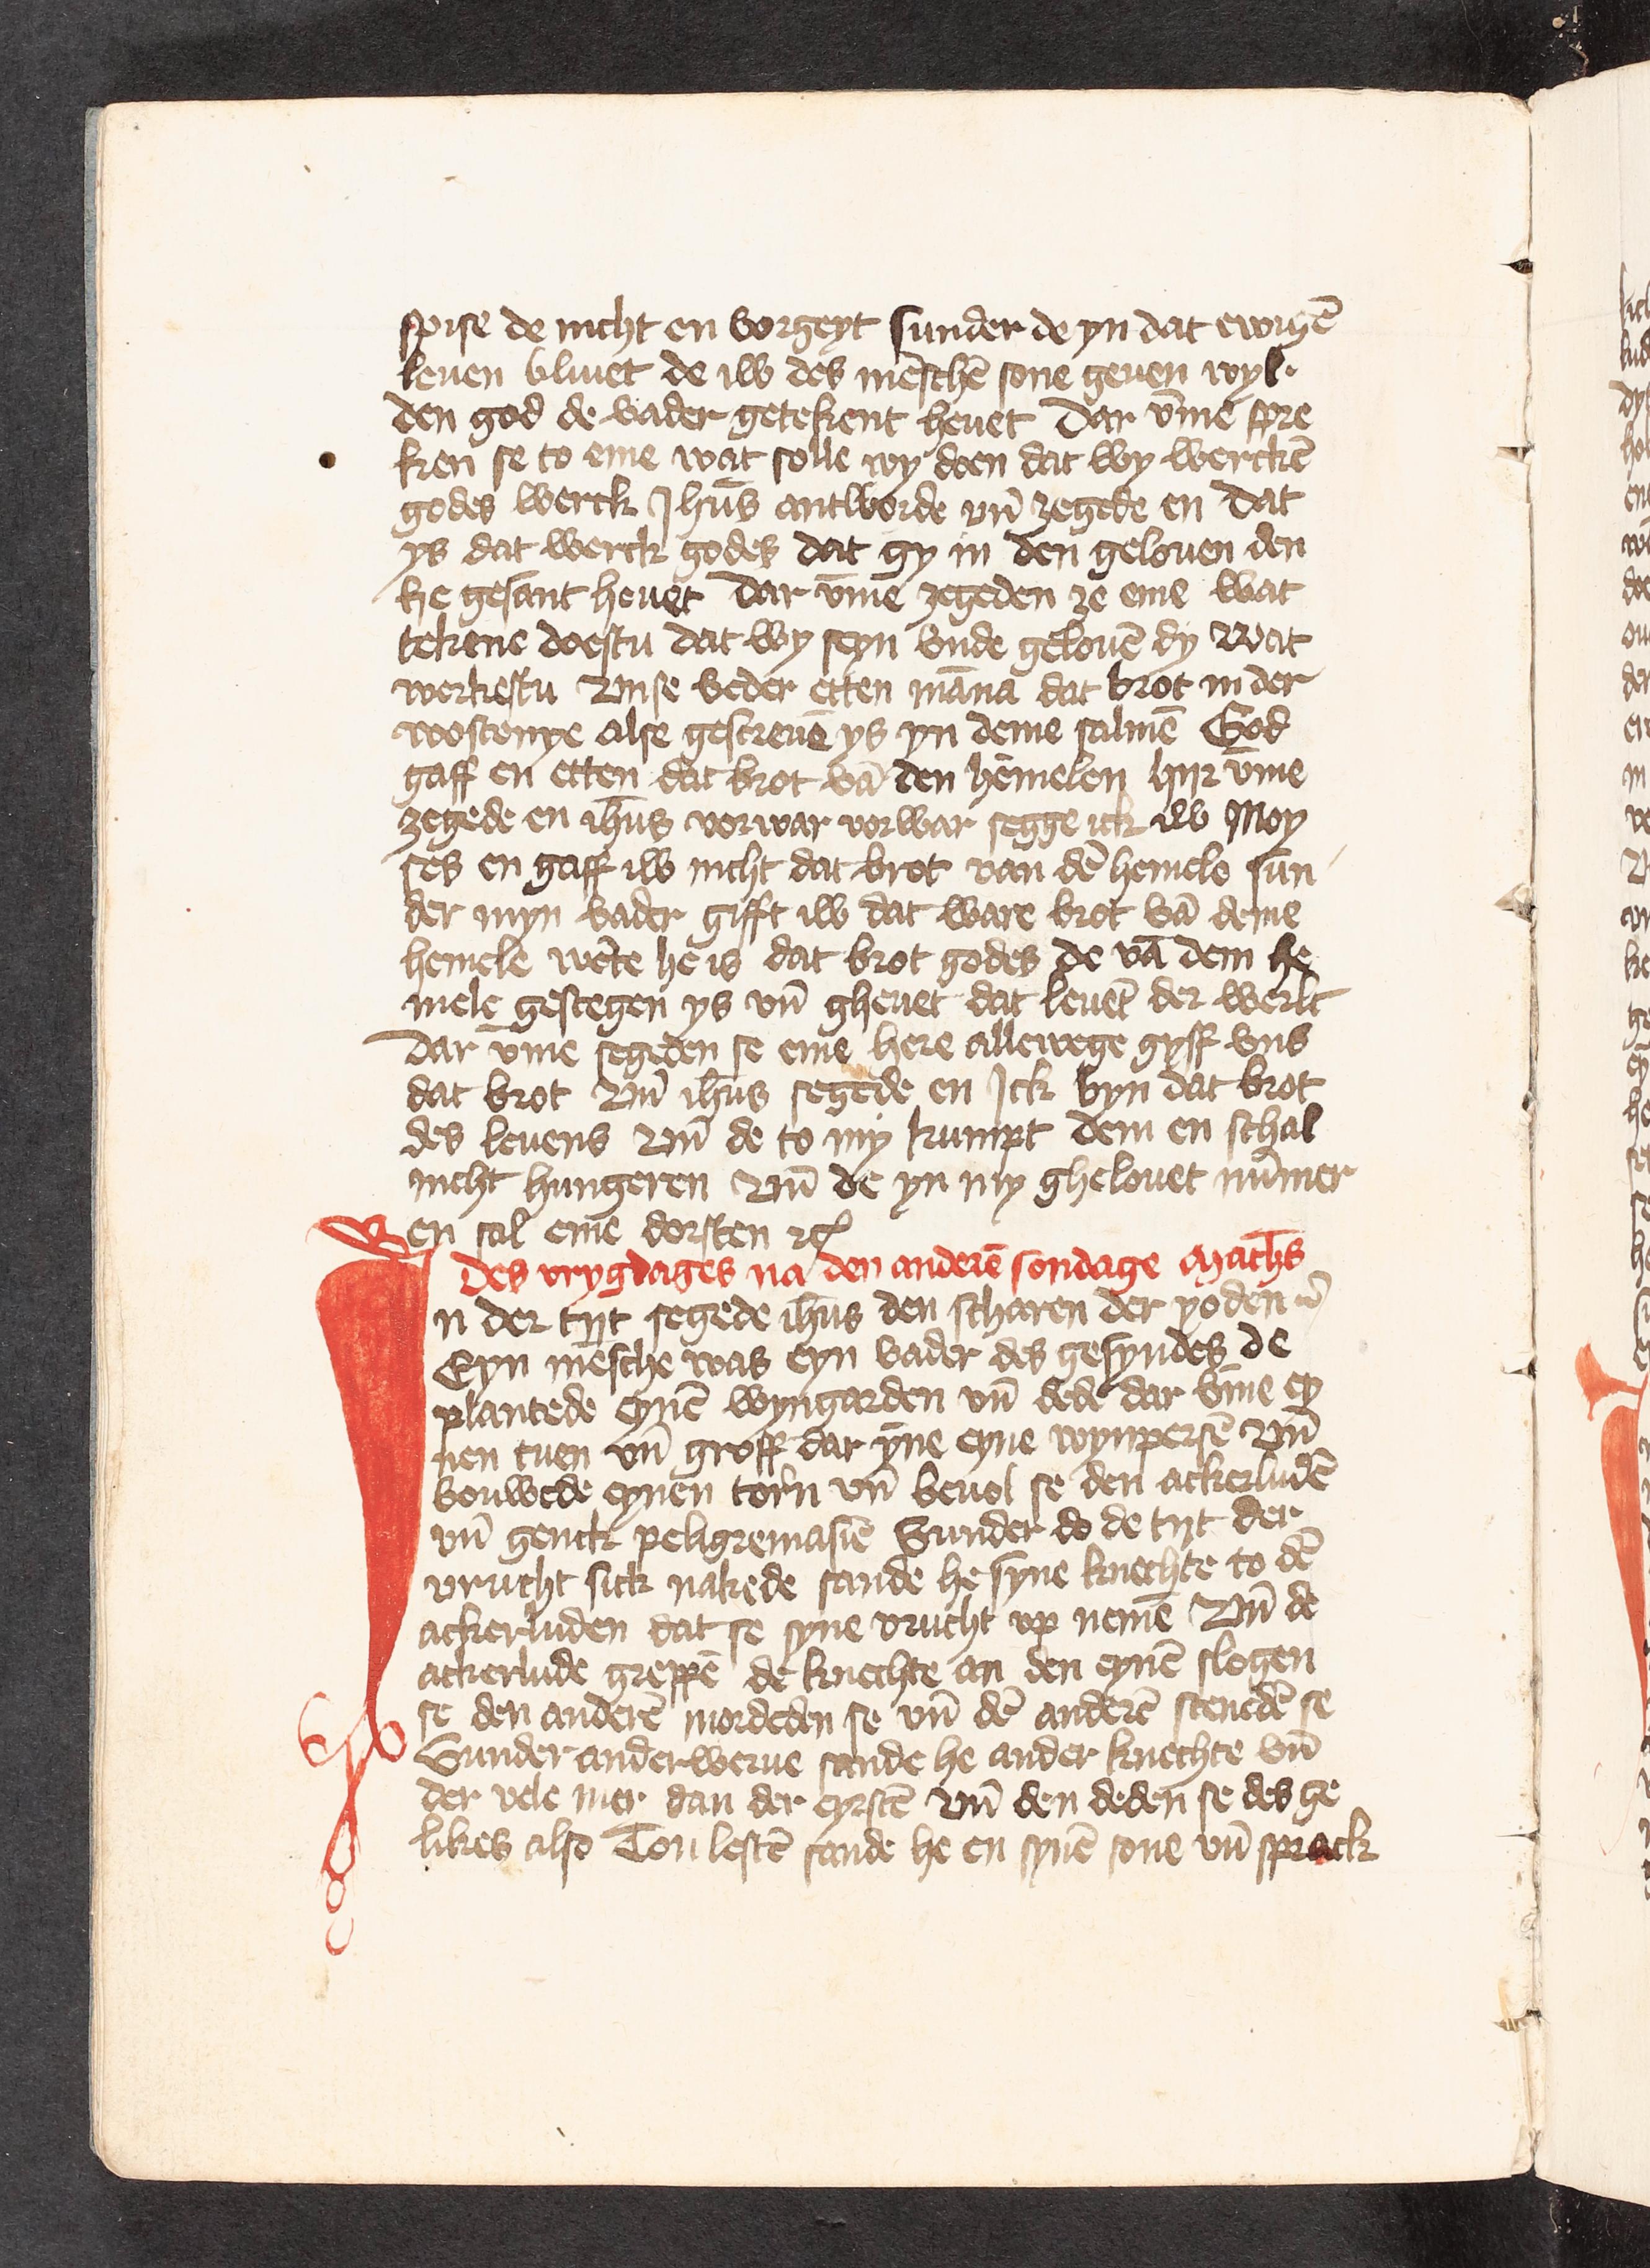 spise de nicht en vorgeyt sunder de yn dat ewigē
leuen bliuet de iw des mēschē sone geuen wyl·
den god de vader getekent heuet Dar v̄me spre
ken se to eme wat solle wy doen dat wy werckē
godes werck Jhūs antworde vn̄ zegede en Dat
ys dat werck godes dat gy in den gelouen den
he gesant heuet Dar v̄me zegeden ze eme wat
tekene doestu dat wy seyn vnde gelouē dy Wat
werkestu Vnse veder etten māna dat brot in der
wostenye alse gescreuē ys yn deme salmē God
gaff en etten dat brot vā den hēmelen hijr v̄me
zegede en ihūs vorwar vorwar segge ick iw Moy
ses en gaff iw nicht dat brot van dē hemele sun
der myn vader gifft iw dat ware brot vā deme
hemele wēte he is dat brot godes de vā dem he
mele gestegen ys vn̄ gheuet dat leuēt der werlt
Dar v̄me segeden se eme here allewege gyff vns
dat brot Vn̄ ihūs segede en Jck byn dat brot
des leuens Vn̄ de to my kumpt dem en schal
nicht hungeren Vn̄ de yn my ghelouet nūmer
en sal eme dorsten ꝛc̄
Des vrygdages na den anderē sondage Maths̄
Jn der tijt segede ihūs den scharen der yoden vn̄
Eyn mēsche was eyn vader des gesyndes de
plantede eynē wyngarden vn̄ dede dar v̄me ey
nen tuen vn̄ groff dar ȳne eyne wynpersē Vn̄
bouwede eynen torn vn̄ beuol se den ackerludē
vn̄ genck peligremasiē Sunder do de tijt der
vrucht sick nakede sande he syne knechte to dē
ackerluden dat se syne vrucht vp nemē Vn̄ de
ackerlude greppē de knechte an den eynē slogen
se den anderē mordeden se vn̄ dē anderē stenedē se
Sunder anderwerue sande he ander knechte vn̄
der vele mer dan der eyrstē Vn̄ den deden se des ge
likes also Ton lestē sande he en synē sone vn̄ sprack